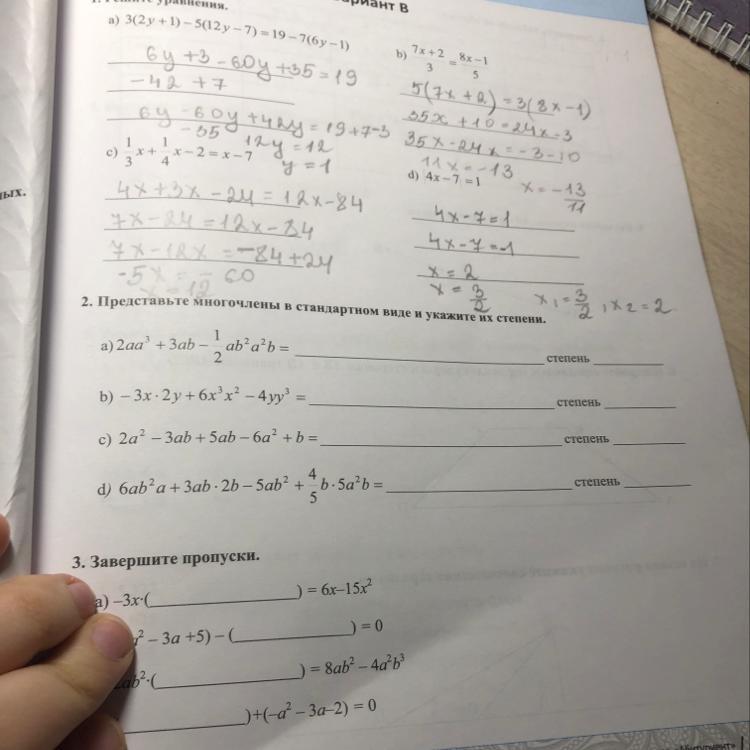 уравнения.
вариант В
a) 3(2y + 1) – 5(12y – 7) = 19 – 7(6y – 1)
6y + 3 – 60y + 35 = 19
– 42 + 7
6y – 60y + 42y = 19 + 7 – 3
– 35 12y = 12
y = 1
b) (7x + 2)/3 = (8x – 1)/5
5(7x + 2) = 3(8x – 1)
35x + 10 = 24x – 3
35x – 24x = – 3 – 10
11x = – 13
x = – 13/11
c) 1/3 x + 1/4 x – 2 = x – 7
4x + 3x – 24 = 12x – 84
7x – 24 = 12x – 84
7x – 12x = – 84 + 24
– 5x = – 60
x = 12
d) 4x – 7 = 1
4x – 7 = 1
4x – 7 = –1
x = 2
x = 3/2 x₁ = 3/2, x₂ = 2
ых.
2. Представьте многочлены в стандартном виде и укажите их степени.
a) 2aa³ + 3ab – 1/2 ab²a²b = степень
b) – 3x · 2y + 6x³x² – 4yy³ = степень
c) 2a² – 3ab + 5ab – 6a² + b = степень
d) 6ab²a + 3ab · 2b – 5ab² + 4/5 b · 5a²b = степень
3. Завершите пропуски.
a) –3x·( ) = 6x–15x²
² – 3a +5) – ( ) = 0
ab²·( ) = 8ab² – 4a²b³
)+(–a² – 3a–2) = 0